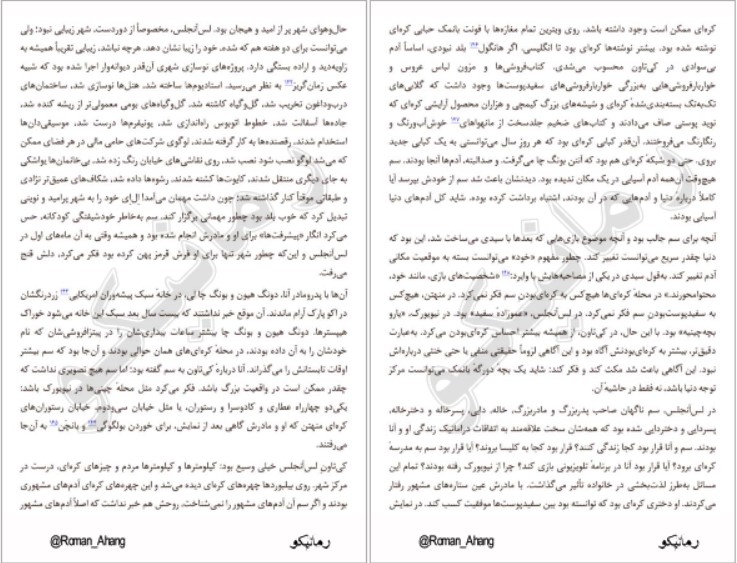 کره‌ای ممکن است وجود داشته باشد. روی ویترین تمام مغازه‌ها با فونت بانمک حبابی کره‌ای
نوشته شده بود. بیشتر نوشته‌ها کره‌ای بود تا انگلیسی. اگر هانگول بلد نبودی، اساساً آدم
بی‌سوادی در کی‌تاون محسوب می‌شدی. کتاب‌فروشی‌ها و مزون لباس عروس و
خواربارفروشی‌هایی به‌بزرگی خواربارفروشی‌های سفیدپوست‌ها وجود داشت که گلابی‌های
تک‌به‌تک بسته‌بندی‌شدهٔ کره‌ای و شیشه‌های بزرگ کیمچی و هزاران محصول آرایشی کره‌ای که
نوید پوستی صاف می‌دادند و کتاب‌های ضخیم جلدسخت از مانهواهای خوش‌آب‌ورنگ و
رنگارنگ می‌فروختند. آن‌قدر کبابی کره‌ای بود که هر روزِ سال می‌توانستی به یک کبابی جدید
بروی. حتی دو شبکهٔ کره‌ای هم بود که آنتن بونگ چا می‌گرفت. و صدالبته، آدم‌ها آنجا بودند. سم
هیچ‌وقت آن‌همه آدم آسیایی در یک مکان ندیده بود. دیدنشان باعث شد سم از خودش بپرسد آیا
کاملاً دربارهٔ دنیا و آدم‌هایی که در آن بودند، اشتباه برداشت کرده بوده. شاید کل آدم‌های دنیا
آسیایی بودند.
آنچه برای سم جالب بود و آنچه موضوع بازی‌هایی که بعدها با سیدی می‌ساخت شد، این بود که
دنیا چقدر سریع می‌توانست تغییر کند. چطور مفهوم «خود» می‌توانست بسته به موقعیت مکانی
آدم تغییر کند. به‌قول سیدی در یکی از مصاحبه‌هایش با وایرد: «شخصیت‌های بازی، مانند خود،
محتوامحورند.» در محلهٔ کره‌ای‌ها هیچ‌کس به کره‌ای‌بودن سم فکر نمی‌کرد. در منهتن، هیچ‌کس
به سفیدپوست‌بودن سم فکر نمی‌کرد. در لس‌آنجلس، «عموزادهٔ سفید» بود. در نیویورک، «یارو
بچه‌چینیه» بود. با این حال، در کی‌تاون، از همیشه بیشتر احساس کره‌ای‌بودن می‌کرد. به‌عبارت
دقیق‌تر، بیشتر به کره‌ای‌بودنش آگاه بود و این آگاهی لزوماً حقیقتی منفی یا حتی خنثی درباره‌اش
نبود. این آگاهی باعث شد مکث کند و فکر کند: شاید یک بچه دورگه بانمک می‌توانست مرکز
توجه دنیا باشد، نه فقط در حاشیهٔ آن.
در لس‌آنجلس، سم ناگهان صاحب پدربزرگ و مادربزرگ، خاله، دایی، پسرخاله و دخترخاله،
پسردایی و دختردایی شده بود که همه‌شان سخت علاقه‌مند به اتفاقات دراماتیک زندگی او و آنا
بودند. سم و آنا قرار بود کجا زندگی کنند؟ قرار بود کجا به کلیسا بروند؟ آیا قرار بود سم به مدرسهٔ
کره‌ای برود؟ آیا قرار بود آنا در برنامهٔ تلویزیونی بازی کند؟ چرا از نیویورک رفته بودند؟ تمام این
مسائل به‌طرز لذت‌بخشی در خانواده تأثیر می‌گذاشت. با مادرش عین ستاره‌های مشهور رفتار
می‌کردند. او دختری کره‌ای بود که توانسته بود بین سفیدپوست‌ها موفقیت کسب کند. در نمایش
رمانیکو
@Roman_Ahang
حال‌وهوای شهر پر از امید و هیجان بود. لس‌آنجلس، مخصوصاً از دوردست، شهر زیبایی نبود؛ ولی
می‌توانست برای دو هفته هم که شده، خود را زیبا نشان دهد. هرچه نباشد، زیبایی تقریباً همیشه به
زاویه‌دید و اراده بستگی دارد. پروژه‌های نوسازی شهری آن‌قدر دیوانه‌وار اجرا شده بود که شبیه
عکس زمان‌گریز به نظر می‌رسید. استادیوم‌ها ساخته شد. هتل‌ها نوسازی شد. ساختمان‌های
درب‌وداغون تخریب شد، گل‌وگیاه کاشته شد. گل‌وگیاه‌های بومی معمولی‌تر از ریشه کنده شد،
جاده‌ها آسفالت شد، خطوط اتوبوس راه‌اندازی شد، یونیفرم‌ها درست شد، موسیقی‌دان‌ها
استخدام شدند. رقصنده‌ها به کار گرفته شدند. لوگوی شرکت‌های حامی مالی در هر فضای ممکن
که می‌شد لوگو نصب شود نصب شد. روی نقاشی‌های خیابان رنگ زده شد. بی‌خانمان‌ها یواشکی
به جای دیگری منتقل شدند. کایوت‌ها کشته شدند. رشوه‌ها داده شد، شکاف‌های عمیق‌تر نژادی
و طبقاتی موقتاً کنار گذاشته شد؛ چون داشت مهمان می‌آمد! ال‌ای خود را به شهر پرامید و نوینی
تبدیل کرد که خوب بلد بود چطور مهمانی برگزار کند. سم به‌خاطر خودشیفتگی کودکانه، حس
می‌کرد انگار «پیشرفت‌ها» برای او و مادرش انجام شده بود و همیشه وقتی به آن ماه‌های اول در
لس‌آنجلس و این‌که چطور شهر تنها برای او فرش قرمز پهن کرده بود فکر می‌کرد، دلش قنج
می‌رفت.
آن‌ها با پدرومادر آنا، دونگ هیون و بونگ چا لی، در خانهٔ سبک پیشه‌وران امریکایی زردرنگشان
در اکو پارک آرام ماندند. آن موقع خبر نداشتند که بیست سال بعد سبک این خانه می‌شود خوراک
هیپسترها. دونگ هیون و بونگ چا بیشتر ساعات بیداری‌شان را در پیتزافروشی‌شان که نام
خودشان را به آن داده بودند، در محلهٔ کره‌ای‌های همان حوالی بودند و آن‌جا بود که سم بیشتر
اوقات تابستانش را می‌گذراند. آنا دربارهٔ کی‌تاون به سم گفته بود؛ اما سم هیچ تصویری نداشت که
چقدر ممکن است در واقعیت بزرگ باشد. فکر می‌کرد مثل محلهٔ چینی‌ها در نیویورک باشد:
یکی‌دو چهارراه عطاری و کادوسرا و رستوران، یا مثل خیابان سی‌ودوم. خیابان رستوران‌های
کره‌ای منهتن که او و مادرش گاهی بعد از نمایش، برای خوردن بولگوگی و بانچن به آن‌جا
می‌رفتند.
کی‌تاون لس‌آنجلس خیلی وسیع بود: کیلومترها و کیلومترها مردم و چیزهای کره‌ای، درست در
مرکز شهر. روی بیلبوردها چهره‌های کره‌ای دیده می‌شد و این چهره‌های کره‌ای آدم‌های مشهوری
بودند و اگر سم آن آدم‌های مشهور را نمی‌شناخت، روحش هم خبر نداشت که اصلاً آدم‌های مشهور
رمانیکو
@Roman_Ahang